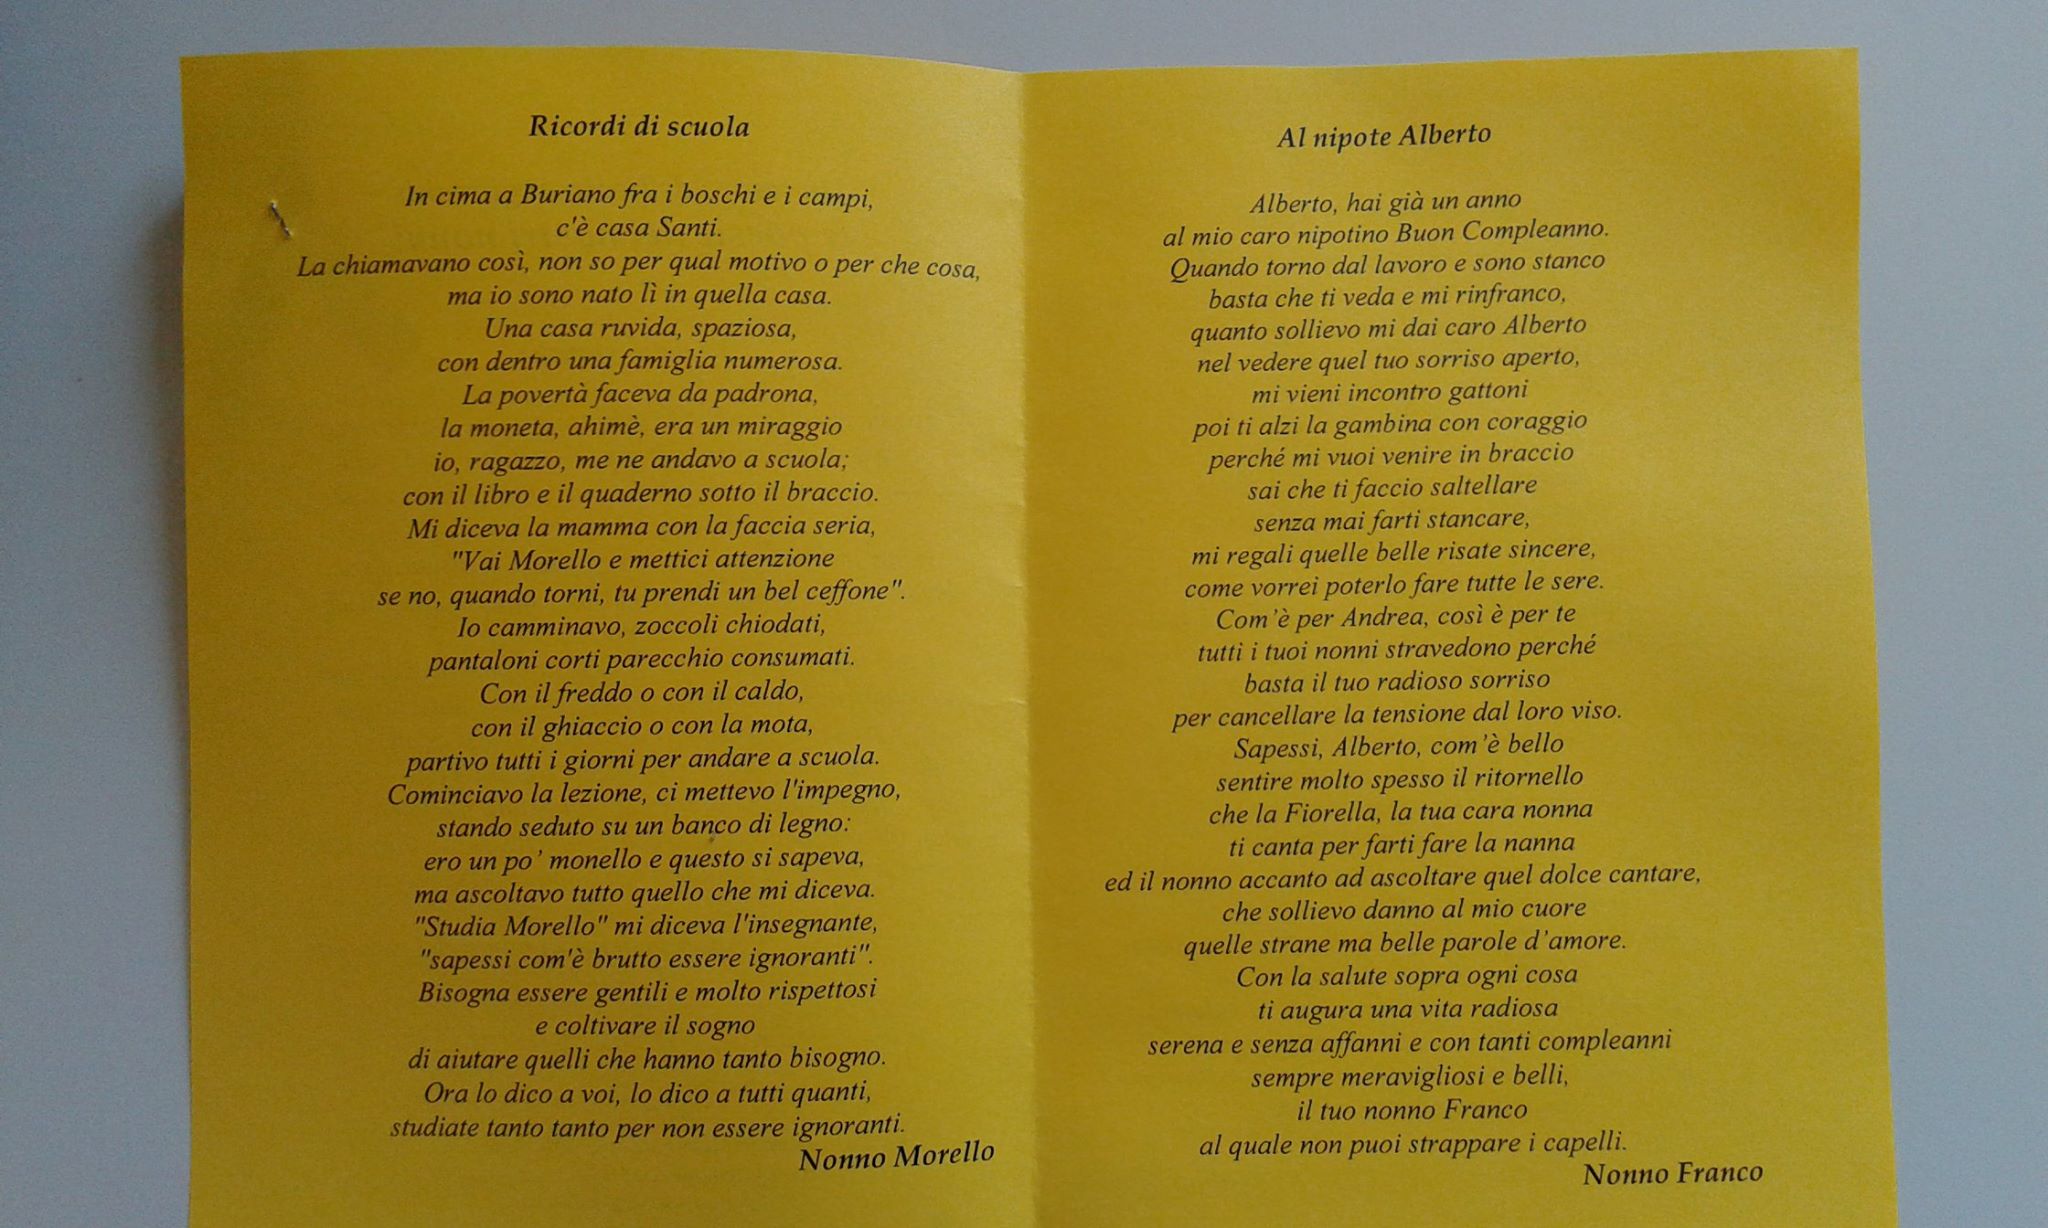 Ricordi di scuola
In cima a Buriano fra i boschi e i campi,
c'è casa Santi.
La chiamavano così, non so per qual motivo o per che cosa,
ma io sono nato lì in quella casa.
Una casa ruvida, spaziosa,
con dentro una famiglia numerosa.
La povertà faceva da padrona,
la moneta, ahimè, era un miraggio
io, ragazzo, me ne andavo a scuola;
con il libro e il quaderno sotto il braccio.
Mi diceva la mamma con la faccia seria,
"Vai Morello e mettici attenzione
se no, quando torni, tu prendi un bel ceffone".
Io camminavo, zoccoli chiodati,
pantaloni corti parecchio consumati.
Con il freddo o con il caldo,
con il ghiaccio o con la mota,
partivo tutti i giorni per andare a scuola.
Cominciavo la lezione, ci mettevo l'impegno,
stando seduto su un banco di legno:
ero un po’ monello e questo si sapeva,
ma ascoltavo tutto quello che mi diceva.
"Studia Morello" mi diceva l'insegnante,
"sapessi com'è brutto essere ignoranti".
Bisogna essere gentili e molto rispettosi
e coltivare il sogno
di aiutare quelli che hanno tanto bisogno.
Ora lo dico a voi, lo dico a tutti quanti,
studiate tanto tanto per non essere ignoranti.
Nonno Morello
Al nipote Alberto
Alberto, hai già un anno
al mio caro nipotino Buon Compleanno.
Quando torno dal lavoro e sono stanco
basta che ti veda e mi rinfranco,
quanto sollievo mi dai caro Alberto
nel vedere quel tuo sorriso aperto,
mi vieni incontro gattoni
poi ti alzi la gambina con coraggio
perché mi vuoi venire in braccio
sai che ti faccio saltellare
senza mai farti stancare,
mi regali quelle belle risate sincere,
come vorrei poterlo fare tutte le sere.
Com’è per Andrea, così è per te
tutti i tuoi nonni stravedono perché
basta il tuo radioso sorriso
per cancellare la tensione dal loro viso.
Sapessi, Alberto, com’è bello
sentire molto spesso il ritornello
che la Fiorella, la tua cara nonna
ti canta per farti fare la nanna
ed il nonno accanto ad ascoltare quel dolce cantare,
che sollievo danno al mio cuore
quelle strane ma belle parole d’amore.
Con la salute sopra ogni cosa
ti augura una vita radiosa
serena e senza affanni e con tanti compleanni
sempre meravigliosi e belli,
il tuo nonno Franco
al quale non puoi strappare i capelli.
Nonno Franco